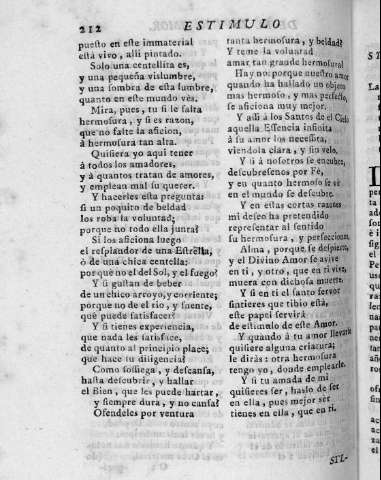 212
ESTIMULO
puesto en este immaterial
está vivo, allí pintado.
Solo una centellita es,
y una pequeña vislumbre,
y una sombra de esta lumbre,
quanto en este mundo vés.
Mira, pues, tu si le falta
hermosura, y si es razon,
que no falte la aficion,
à hermosura tan alta.
Quisiera yo aqui tener
à todos los amadores,
y à quantos tratan de amores,
y emplean mal su querer.
Y hacerles esta pregunta:
si un poquito de beldad
los roba la voluntad;
porque no todo ella junta?
Si los aficiona luego
el resplandor de una Estrella,
ò de una chica centella:
porque no el del Sol, y el fuego?
Y si gustan de beber
de un chico arroyo, y corriente;
porque no de el rio, y fuente,
què puede satisfacer?
Y si tienes experiencia,
que nada les satisface,
de quanto al principio place;
que hace tu diligencia?
Como sossiega, y descansa,
hasta descubrir, y hallar
el Bien, que les puede hartar,
y siempre dura, y no cansa?
Ofendeles por ventura
tanta hermosura, y beldad?
Y teme la voluntad
amar tan grande hermosura?
Hay no: porque nuestro amor
quando ha hallado un objeto
mas hermoso, y mas perfecto,
se aficiona muy mejor.
Y assi à los Santos de el Cielo
aquella Essencia infinita
à su amor los necessita,
viendola clara, y sin velo.
Y si à nosotros se encubre,
descubresenos por Fè,
y en quanto hermoso se vè
en el mundo se descubre.
Y en estas cortas razones
mi deseo ha pretendido
representar al sentido
su hermosura, y perfecciones.
Alma, porque se despierte,
y el Divino Amor se avive
en ti, y otro, que en ti vive,
muera con dichosa muerte.
Y si en ti el santo fervor
sintieres que tibio està,
este papel servirá
de estimulo de este Amor.
Y quando à tu amor llevare
quisiere algun criatura;
le diràs: otra hermosura
tengo yo, donde emplearle.
Y si tu amada de mi
quisieres ser, haslo de ser
en ella, pues mejor ser
tienes en ella, que en ti.
STI-